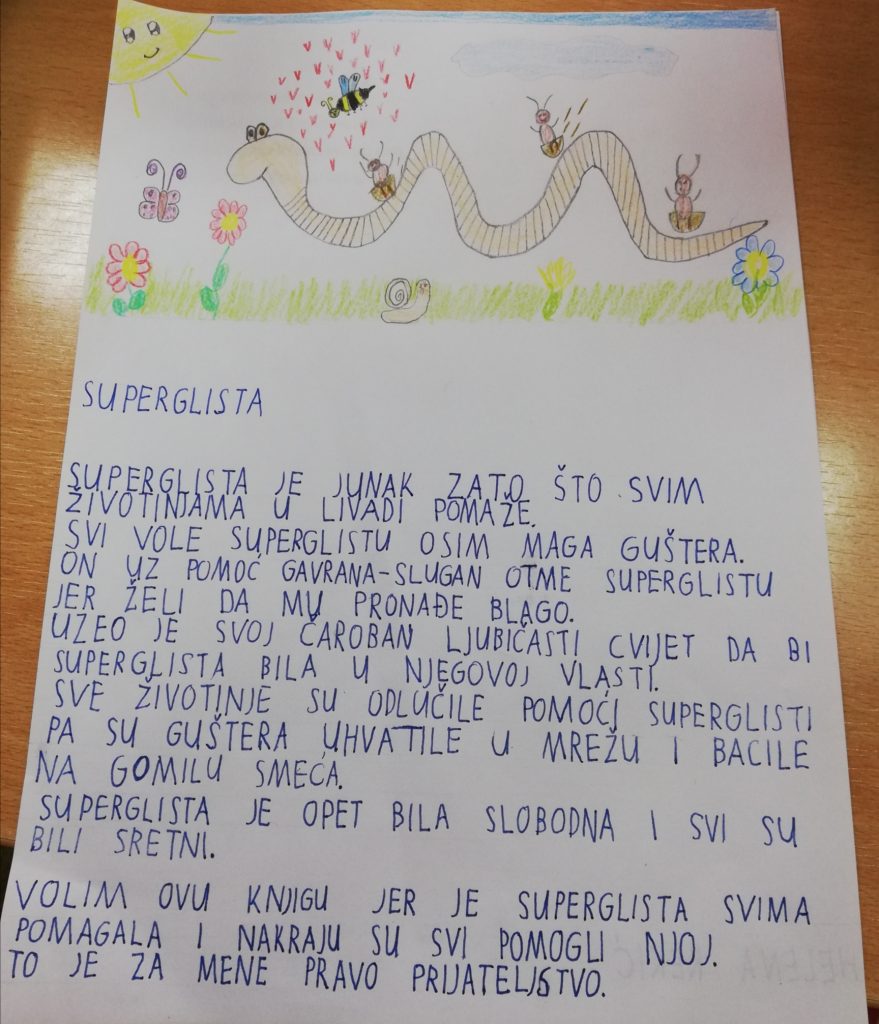 SUPERGLISTA
SUPERGLISTA JE JUNAK ZATO ŠTO SVIM
ŽIVOTINJAMA U LIVADI POMAŽE.
SVI VOLE SUPERGLISTU OSIM MAGA GUŠTERA.
ON UZ POMOĆ GAVRANA-SLUGAN OTME SUPERGLISTU
JER ŽELI DA MU PRONAĐE BLAGO.
UZEO JE SVOJ ČAROBAN LJUBIČASTI CVIJET DA BI
SUPERGLISTA BILA U NJEGOVOJ VLASTI.
SVE ŽIVOTINJE SU ODLUČILE POMOĆI SUPERGLISTI
PA SU GUŠTERA UHVATILE U MREŽU I BACILE
NA GOMILU SMEĆA.
SUPERGLISTA JE OPET BILA SLOBODNA I SVI SU
BILI SRETNI.
VOLIM OVU KNJIGU JER JE SUPERGLISTA SVIMA
POMAGALA I NAKRAJU SU SVI POMOGLI NJOJ.
TO JE ZA MENE PRAVO PRIJATELJSTVO.